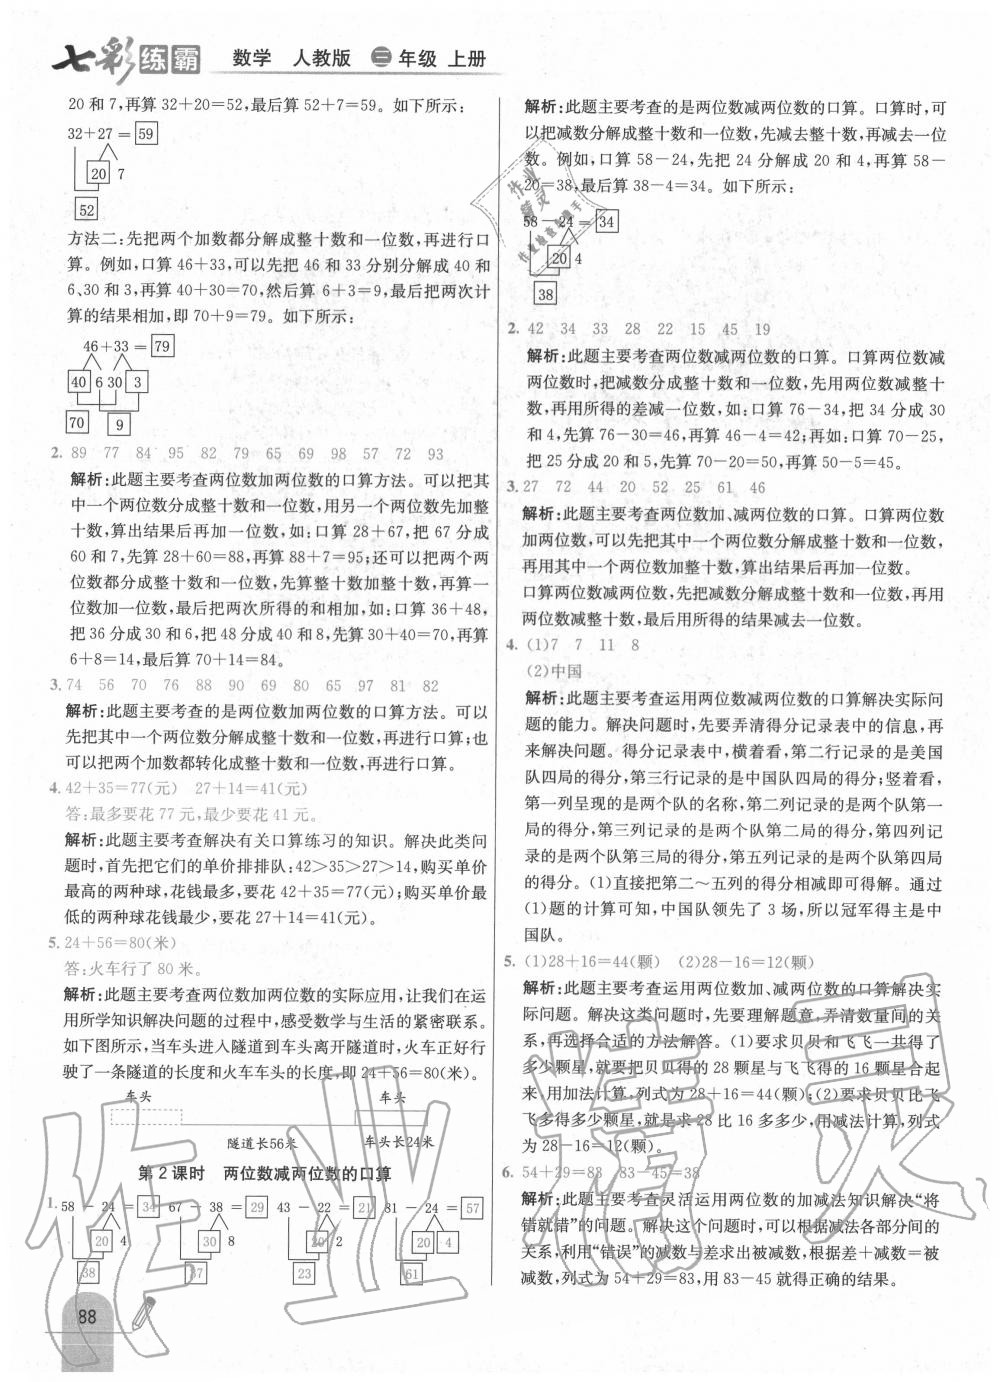 七彩练霸 数学 人教版 三年级 上册
20 和 7,再算 32+20=52,最后算 52+7=59。如下所示:
32+27=59
20 7
52
方法二:先把两个加数都分解成整十数和一位数,再进行口
算。例如,口算 46+33,可以先把 46 和 33 分别分解成 40 和
6、30 和 3,再算 40+30=70,然后算 6+3=9,最后把两次计
算的结果相加,即 70+9=79。如下所示:
46+33=79
40 6 30 3
70 9
2. 89 77 84 95 82 79 65 69 98 57 72 93
解析:此题主要考查两位数加两位数的口算方法。可以把其
中一个两位数分成整十数和一位数,用另一个两位数先加整
十数,算出结果后再加一位数,如:口算 28+67,把 67 分成
60 和 7,先算 28+60=88,再算 88+7=95;还可以把两个两
位数都分成整十数和一位数,先算整十数加整十数,再算一
位数加一位数,最后把两次所得的和相加,如:口算 36+48,
把 36 分成 30 和 6,把 48 分成 40 和 8,先算 30+40=70,再算
6+8=14,最后算 70+14=84。
3. 74 56 70 76 88 90 69 80 65 97 81 82
解析:此题主要考查的是两位数加两位数的口算方法。可以
先把其中一个两位数分解成整十数和一位数,再进行口算;也
可以把两个加数都转化成整十数和一位数,再进行口算。
4. 42+35=77(元) 27+14=41(元)
答:最多要花 77 元,最少要花 41 元。
解析:此题主要考查解决有关口算练习的知识。解决此类问
题时,首先把它们的单价排排队:42>35>27>14,购买单价
最高的两种球,花钱最多,要花 42+35=77(元);购买单价最
低的两种球花钱最少,要花 27+14=41(元)。
5. 24+56=80(米)
答:火车行了 80 米。
解析:此题主要考查两位数加两位数的实际应用,让我们在运
用所学知识解决问题的过程中,感受数学与生活的紧密联系。
如下图所示,当车头进入隧道到车头离开隧道时,火车正好行
驶了一条隧道的长度和火车车头的长度,即 24+56=80(米)。
车头 车头
隧道长56米 车头长24米
第 2 课时 两位数减两位数的口算
1. 58-24=34 67-38=29 43-22=21 81-24=57
20 4 30 8 20 2 20 4
38 37 23 61
88
解析:此题主要考查的是两位数减两位数的口算。口算时,可
以把减数分解成整十数和一位数,先减去整十数,再减去一位
数。例如,口算 58-24,先把 24 分解成 20 和 4,再算 58-
20=38,最后算 38-4=34。如下所示:
58-24=34
20 4
38
2. 42 34 33 28 22 15 45 19
解析:此题主要考查两位数减两位数的口算。口算两位数减
两位数时,把减数分成整十数和一位数,先用两位数减整十
数,再用所得的差减一位数,如:口算 76-34,把 34 分成 30
和 4,先算 76-30=46,再算 46-4=42;再如:口算 70-25,
把 25 分成 20 和 5,先算 70-20=50,再算 50-5=45。
3. 27 72 44 20 52 25 61 46
解析:此题主要考查两位数加、减两位数的口算。口算两位数
加两位数,可以先把其中一个两位数分解成整十数和一位数,
再用其中一个两位数加整十数,算出结果后再加一位数。
口算两位数减两位数,先把减数分解成整十数和一位数,再用
两位数减整十数,最后用所得的结果减去一位数。
4. (1)7 7 11 8
(2)中国
解析:此题主要考查运用两位数减两位数的口算解决实际问
题的能力。解决问题时,先要弄清得分记录表中的信息,再
来解决问题。得分记录表中,横着看,第二行记录的是美国
队四局的得分,第三行记录的是中国队四局的得分;竖着看,
第一列呈现的是两个队的名称,第二列记录的是两个队第一
局的得分,第三列记录的是两个队第二局的得分,第四列记
录的是两个队第三局的得分,第五列记录的是两个队第四局
的得分。(1)直接把第二~五列的得分相减即可得解。通过
(1)题的计算可知,中国队领先了 3 场,所以冠军得主是中
国队。
5. (1)28+16=44(颗) (2)28-16=12(颗)
解析:此题主要考查运用两位数加、减两位数的口算解决实
际问题。解决这类问题时,先要理解题意,弄清数量间的关
系,再选择合适的方法解答。(1)要求贝贝和飞飞一共得了
多少颗星,就要把贝贝得的 28 颗星与飞飞得的 16 颗星合起
来,用加法计算,列式为 28+16=44(颗);(2)要求贝贝比飞
飞多得多少颗星,就是求 28 比 16 多多少,用减法计算,列式
为 28-16=12(颗)。
6. 54+29=83 83-45=38
解析:此题主要考查灵活运用两位数的加减法知识解决“将
错就错”的问题。解决这个问题时,可以根据减法各部分间的
关系,利用“错误”的减数与差求出被减数,根据差+减数=被
减数,列式为 54+29=83,用 83-45 就得正确的结果。
作业精灵